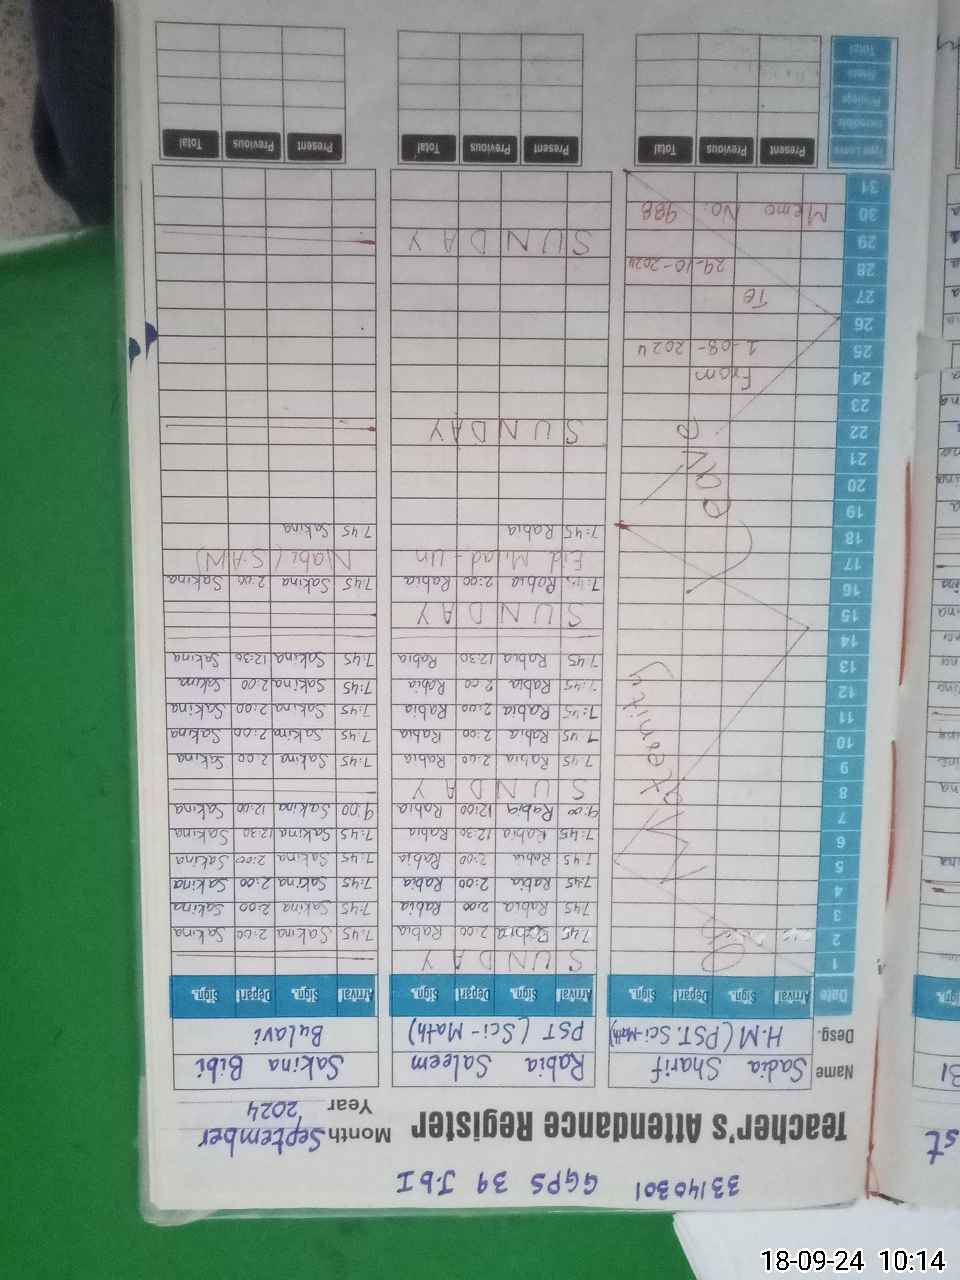 33140301 GGPS 39 J.b I
Teacher's Attendance Register Month September
Year 2024
Name Sadia Sharif Rabia Saleem Sakina Bibi
Desg. H.M (PST. Sci-Math) PST (Sci-Math) Bulavi
Date Arrival Sign. Depart Sign. Arrival Sign. Depart Sign. Arrival Sign. Depart Sign.
1 SUNDAY
2 7:45 Rabia 2:00 Rabia 7:45 Sakina 2:00 Sakina
3 7:45 Rabia 2:00 Rabia 7:45 Sakina 2:00 Sakina
4 7:45 Rabia 2:00 Rabia 7:45 Sakina 2:00 Sakina
5 7:45 Rabia 2:00 Rabia 7:45 Sakina 2:00 Sakina
6 7:45 Rabia 12:30 Rabia 7:45 Sakina 12:30 Sakina
7 9:00 Rabia 12:00 Rabia 9:00 Sakina 12:00 Sakina
8 SUNDAY
9 7:45 Rabia 2:00 Rabia 7:45 Sakina 2:00 Sakina
10 7:45 Rabia 2:00 Rabia 7:45 Sakina 2:00 Sakina
11 7:45 Rabia 2:00 Rabia 7:45 Sakina 2:00 Sakina
12 7:45 Rabia 2:00 Rabia 7:45 Sakina 2:00 Sakina
13 7:45 Rabia 12:30 Rabia 7:45 Sakina 12:30 Sakina
14
15 SUNDAY
16 7:45 Rabia 2:00 Rabia 7:45 Sakina 2:00 Sakina
17 Eid Milad-Un Nabi (S.A.W)
18 7:45 Rabia 7:45 Sakina
19
20
21
22 SUNDAY
23
24 From
25 1-08-2024
26
27 To
28 29-10-2024
29 SUNDAY
30 Memo No: 988
31
Maternity
Leave
Type Leave Present Previous Total Present Previous Total Present Previous Total
Privilege
Total
18-09-24 10:14